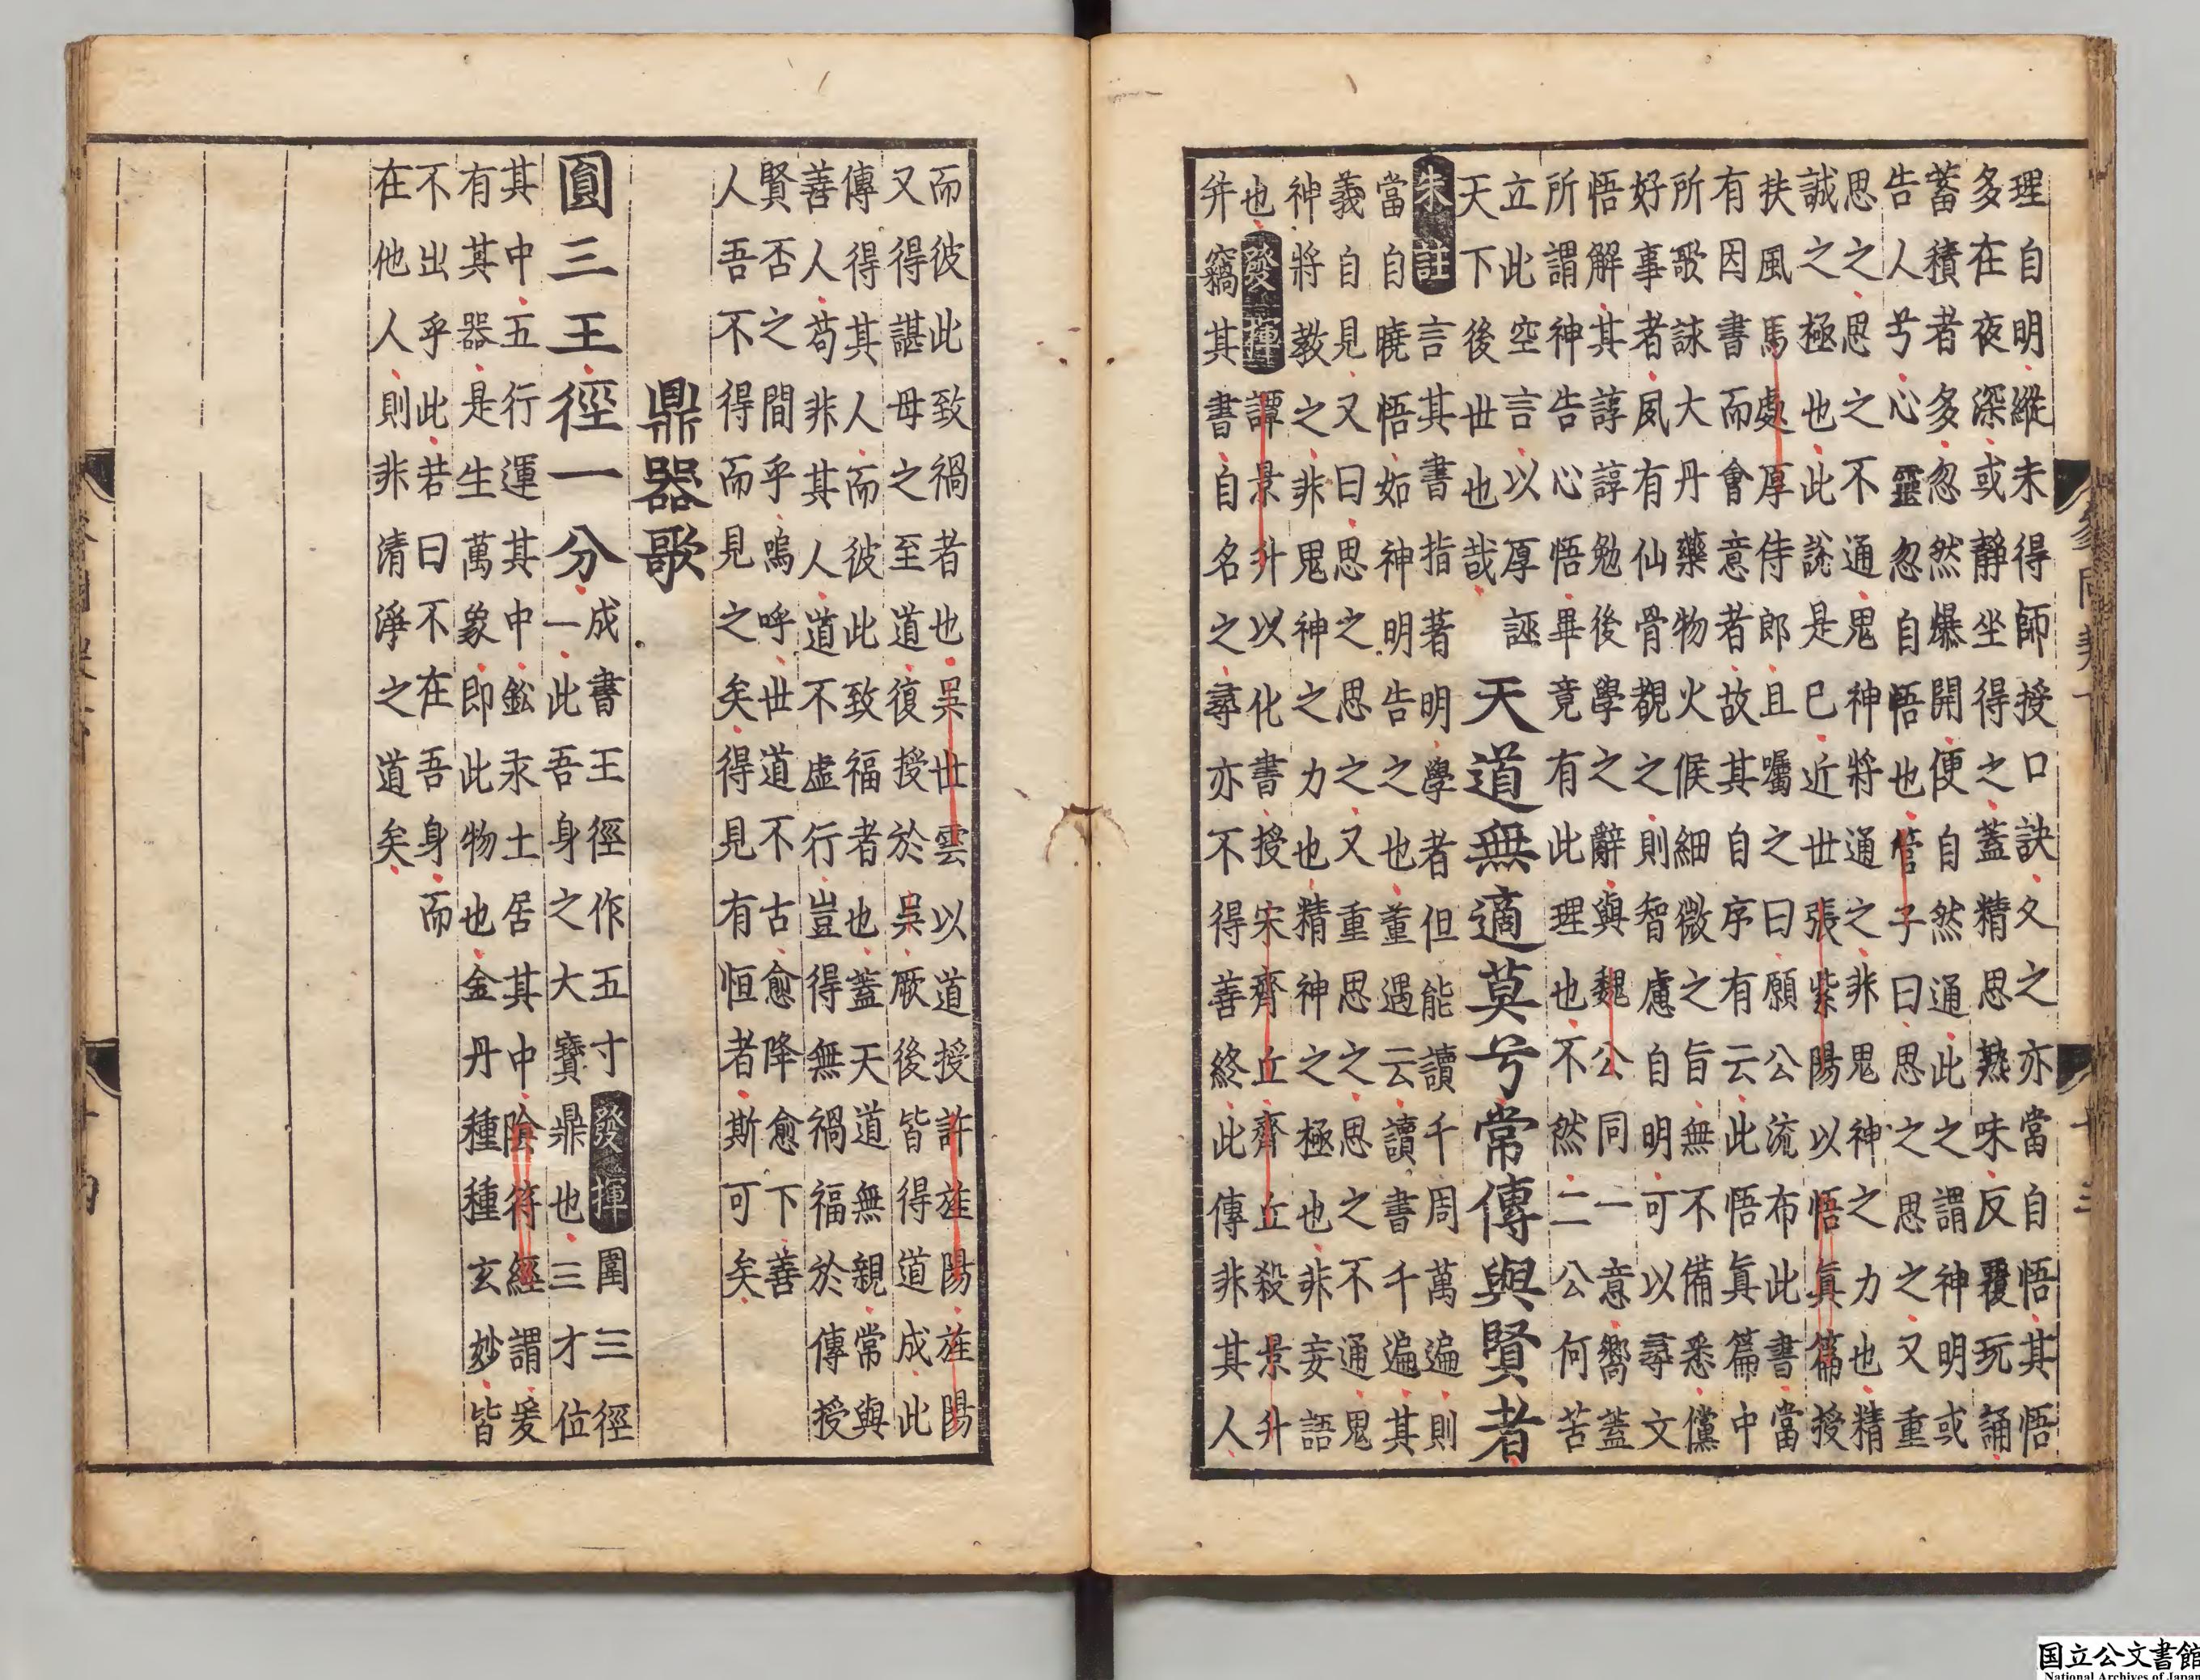 理自明縱未得師授口訣久之亦當自悟其悟
多在夜深或靜坐得之蓋精思熟味反覆玩誦
蓄積者多忽然爆開便自然通此之謂神明或
告人兮心靈忽自悟也管子曰思之思之又重
思之思之不通鬼神將通之非鬼神之力也精
誠之極也此說是已近世張紫陽以悟眞篇授
扶風馬處厚侍郎且囑之曰願公流布此書當
有因書而會意者故其自序有云此悟眞篇中
所歌詠大丹藥物火候細微之旨無不備悉儻
好事者夙有仙骨觀之則智慮自明可以尋文
悟解其諄諄勉後學之辭與魏公同一意嚮蓋
所謂神告心悟畢竟有此理也不然二公何苦
立此空言以厚誣
天下後世也哉
天道無適莫兮常傳與賢者
朱註言其書指著明學者但能讀千周萬遍則
當自曉悟如神明告之也董遇云讀書千遍其
義自見又曰思之思之又重思之思之不通鬼
神將教之非鬼神之力也精神之極也非妄語
也發揮譚景升以化書授宋齊丘齊丘殺景升
并竊其書自名之尋亦不得善終此傳非其人
而彼此致禍者也吳世雲以道授許旌陽旌陽
又得諶母之至道復授於吳厥後皆得道成此
傳得其人而彼此致福者也蓋天道無親常與
善人苟非其人道不虛行豈得無禍福於傳授
賢否之間乎嗚呼世道不古愈降愈下善
人吾不得而見之矣得見有恒者斯可矣
鼎器歌
圓三王徑一分
成書王徑作五寸發揮圍三徑
一此吾身之大寶鼎也三才位
其中五行運其中鉛汞土居其中陰符經謂爰
有其器是生萬象即此物也金丹種種玄妙皆
不出乎此若曰不在吾身而
在他人則非清淨之道矣
国立公文書館
National Archives of Japan